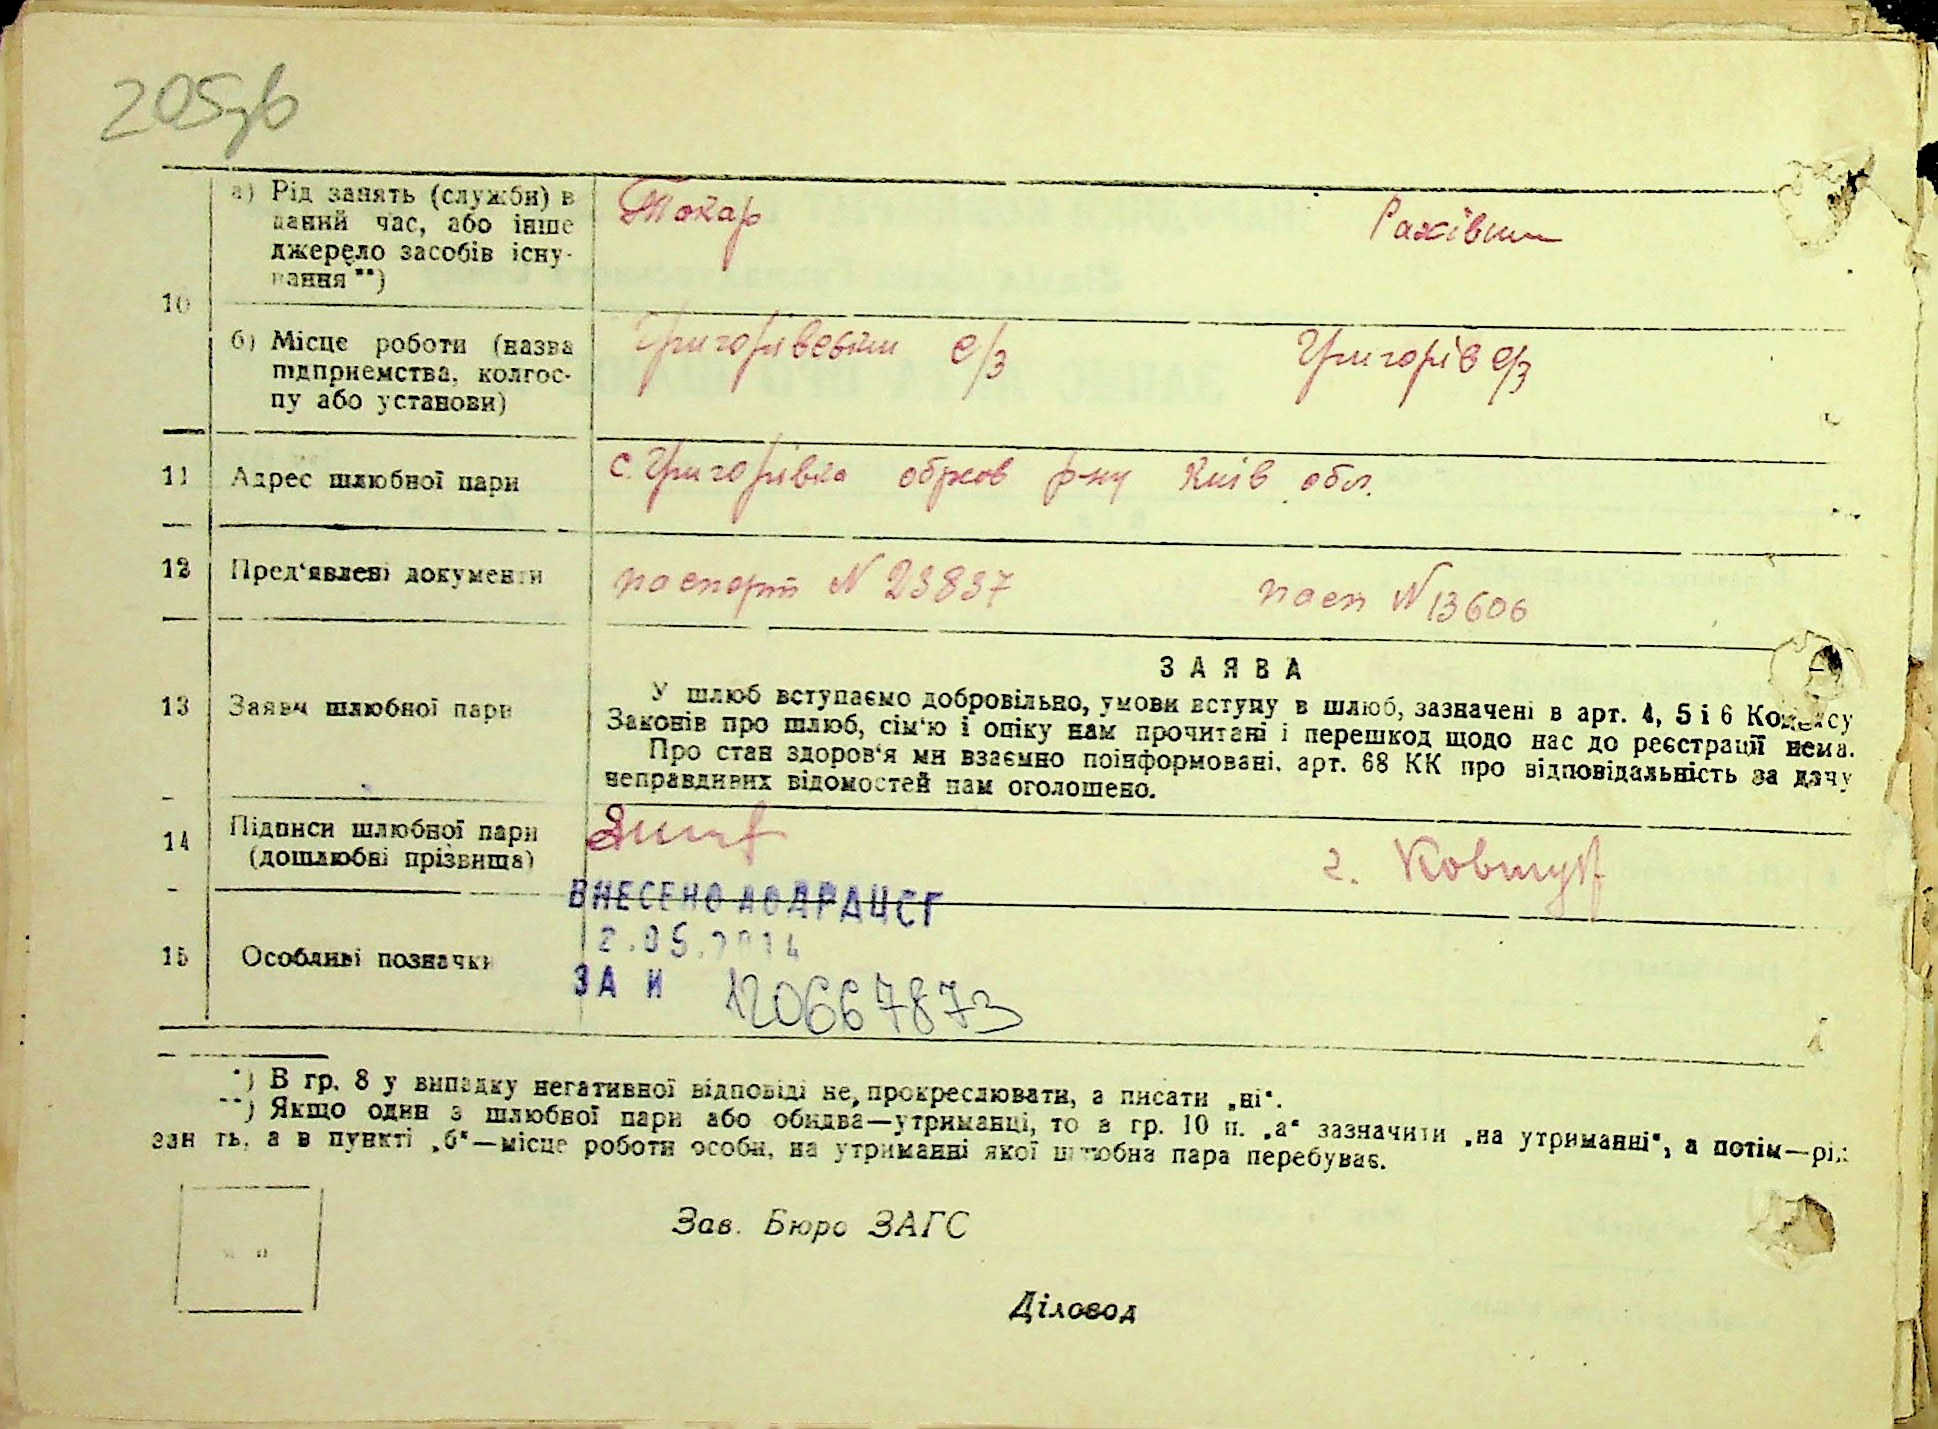 205зв
а) Рід занять (служби) в
даний час, або інше
джерело засобів існу-
вання**)
Токар
10
б) Місце роботи (назва
підприємства, колгос-
пу або установи)
с/з
Григорів с/з
11 Адрес шлюбної пари
с. Григорівка обухов р-ну Київ обл.
12 Пред'явлені документи
паспорт N 23837
пасп N 13606
ЗАЯВА
13 Заява шлюбної пари
У шлюб вступаємо добровільно, умови вступу в шлюб, зазначені в арт. 4, 5 і 6 Кодексу
Законів про шлюб, сім'ю і опіку нам прочитані і перешкод щодо нас до реєстрації нема.
Про стан здоров'я ми взаємно поінформовані. арт. 68 КК про відповідальність за дачу
неправдивих відомостей нам оголошено.
14 Підписи шлюбної пари
(дошлюбні прізвища)
г. Ковтун
ВНЕСЕНО ДО ДРАЦСГ
2.05.2014
15 Особливі позначки
ЗА N 120667873
*) В гр. 8 у випадку негативної відповіді не прокреслювати, а писати „ні“.
**) Якщо один з шлюбної пари або обидва—утриманці, то в гр. 10 п. „а“ зазначити „на утриманні“, а потім—рід
занять, а в пункті „б“—місце роботи особи, на утриманні якої шлюбна пара перебуває.
Зав. Бюро ЗАГС
Діловод